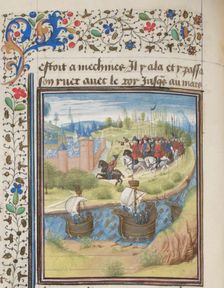 estoit a mechines Il y ala et passa
son ruet avec le roy Jusqe au mat